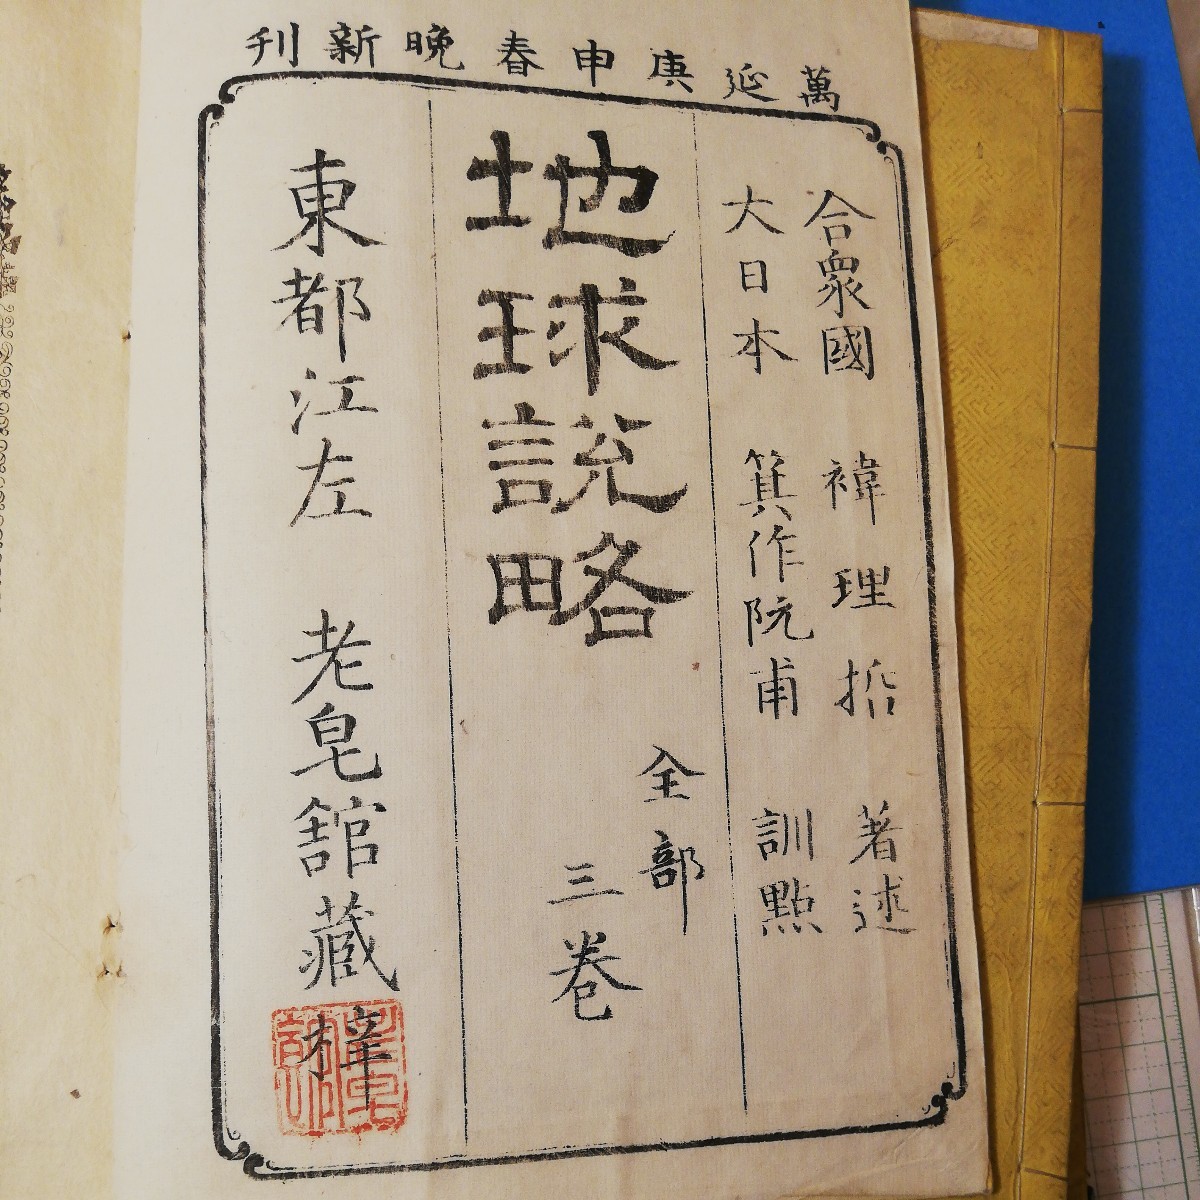 萬延庚申春晩新刊
合衆國 褘理哲 著述
大日本 箕作阮甫 訓點
地球説略
全部
三巻
東都江左 老皂館藏梓